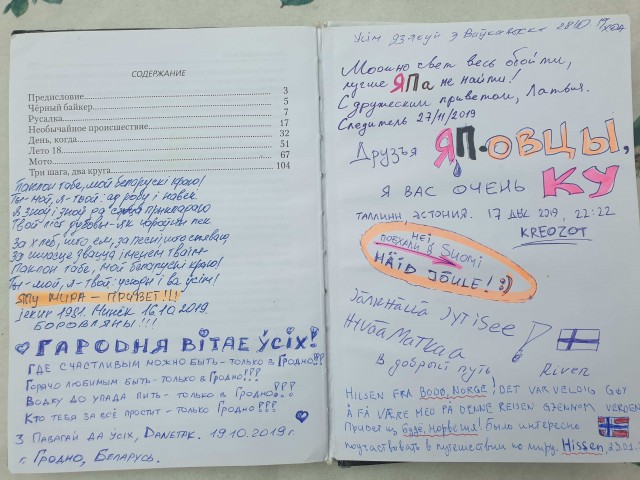 СОДЕРЖАНИЕ
Предисловие 3
Чёрный байкер 5
Русалка 7
Необычайное происшествие 17
День, когда 32
Лето 18 51
Мото 67
Три шага, два круга 104
Паклон табе, мой беларускі краю!
Ты- мой, я- твой: ад роду і навек.
В зной і зной да
Твой ліст дубовы- як чароўны лек
За хлеб, што ем, за песні, што спяваю,
За шчасце звацца іменем тваім
Паклон табе, мой беларускі краю!
Ты- мой, я- твой: учора і ва ўсім!
ЯПу МИРА – ПРИВЕТ!!!
jekur 1981. Минск 16.10.2019.
БОРОВЛЯНЫ!!!
ГАРОДНЯ ВІТАЕ ЎСІХ!
Где счастливым можно быть - только в Гродно!!!
Горячо любимым быть - только в Гродно!!!
Водку до упада пить - только в Гродно!!!
Кто тебя за всё простит - только Гродно!!!
З павагай да ўсіх, Danetak. 19.10.2019 г.
г. Гродно, Беларусь.
Усім дзякуй з Ваўкавыска 28.10
Можно свет весь обойти,
лучше ЯПа не найти!
С дружеским приветом, Латвия.
Следитель 27/11/2019
Друзья ЯП-ОВЦЫ,
Я ВАС ОЧЕНЬ КУ
ТАЛЛИНН, ЭСТОНИЯ. 17 ДЕК 2019, 22:22
KREOZOT
HEI,
ПОЕХАЛИ В SUOMI
HÄID JÕULE! :)
Jytisee!
Hyvää Matkaa
В добрый путь
River
HILSEN FRA BODØ, NORGE! DET VAR VELDIG GØY
Å FÅ VÆRE MED PÅ DENNE REISEN GJENNOM VERDEN
Привет из Будё, Норвегия! Было интересно
поучаствовать в путешествии по миру. Hissen 23.01.